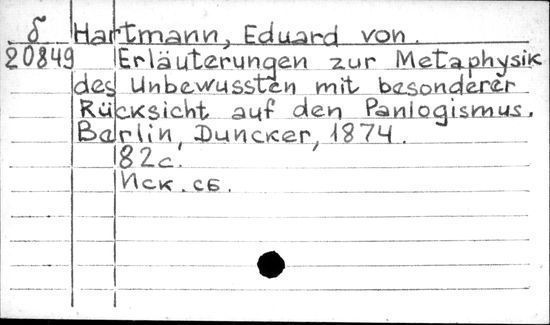 δ Hartmann, Eduard von.
20849 Erläuterungen zur Metaphysik
des Unbewussten mit besonderer
Rücksicht auf den Panlogismus.
Berlin, Duncker, 1874.
82с.
Иск. сб.